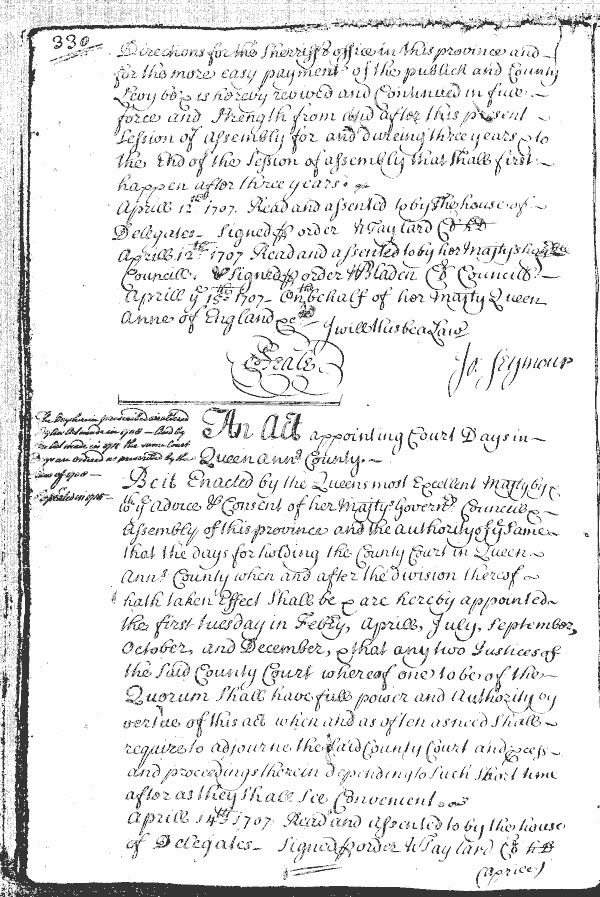 330
Directions for the Sherriffs office in this province and
for the more easy payment of the publick and County
Levy be & is hereby revived and Continued in full
force and Strength from and after this present
Session of Assembly for and dureing three years & to
the End of the Session of assembly that shall first
happen after three years.
Aprill 12th 1707. Read and assented to by the house of
Delegates Signed p order W Taylard Cl h D
Aprill 12th 1707 Read and assented to by her Majtys hon
Councill. Signed p order W Bladen Cl Councill
Aprill ye 15th 1707 On behalf of her Majty Queen
Anne of England &c I will this be a Law
Seale
Jo Seymour
An Act appointing Court Days in
Queen Anns County.
Be it Enacted by the Queens most Excellent Majty by &
wth ye Advice & Consent of her Majtys Governr Councill &
Assembly of this province and the authority of ye Same
that the days for holding the County Court in Queen
Anns County when and after the division thereof
hath taken Effect Shall be & are hereby appointed
the first tuesday in Febry, Aprill, July, September,
October, and December, & that any two Justices of
the Said County Court whereof one to be of the
Quorum Shall have full power and Authority by
vertue of this act when and as often as need Shall
require to adjourne the said County Court and process
and proceedings therein depending to Such Short time
after as they Shall See Convenient.
Aprill 14th 1707 Read and assented to by the house
of Delegates Signed p order W Taylard Cl h D
(Aprill)